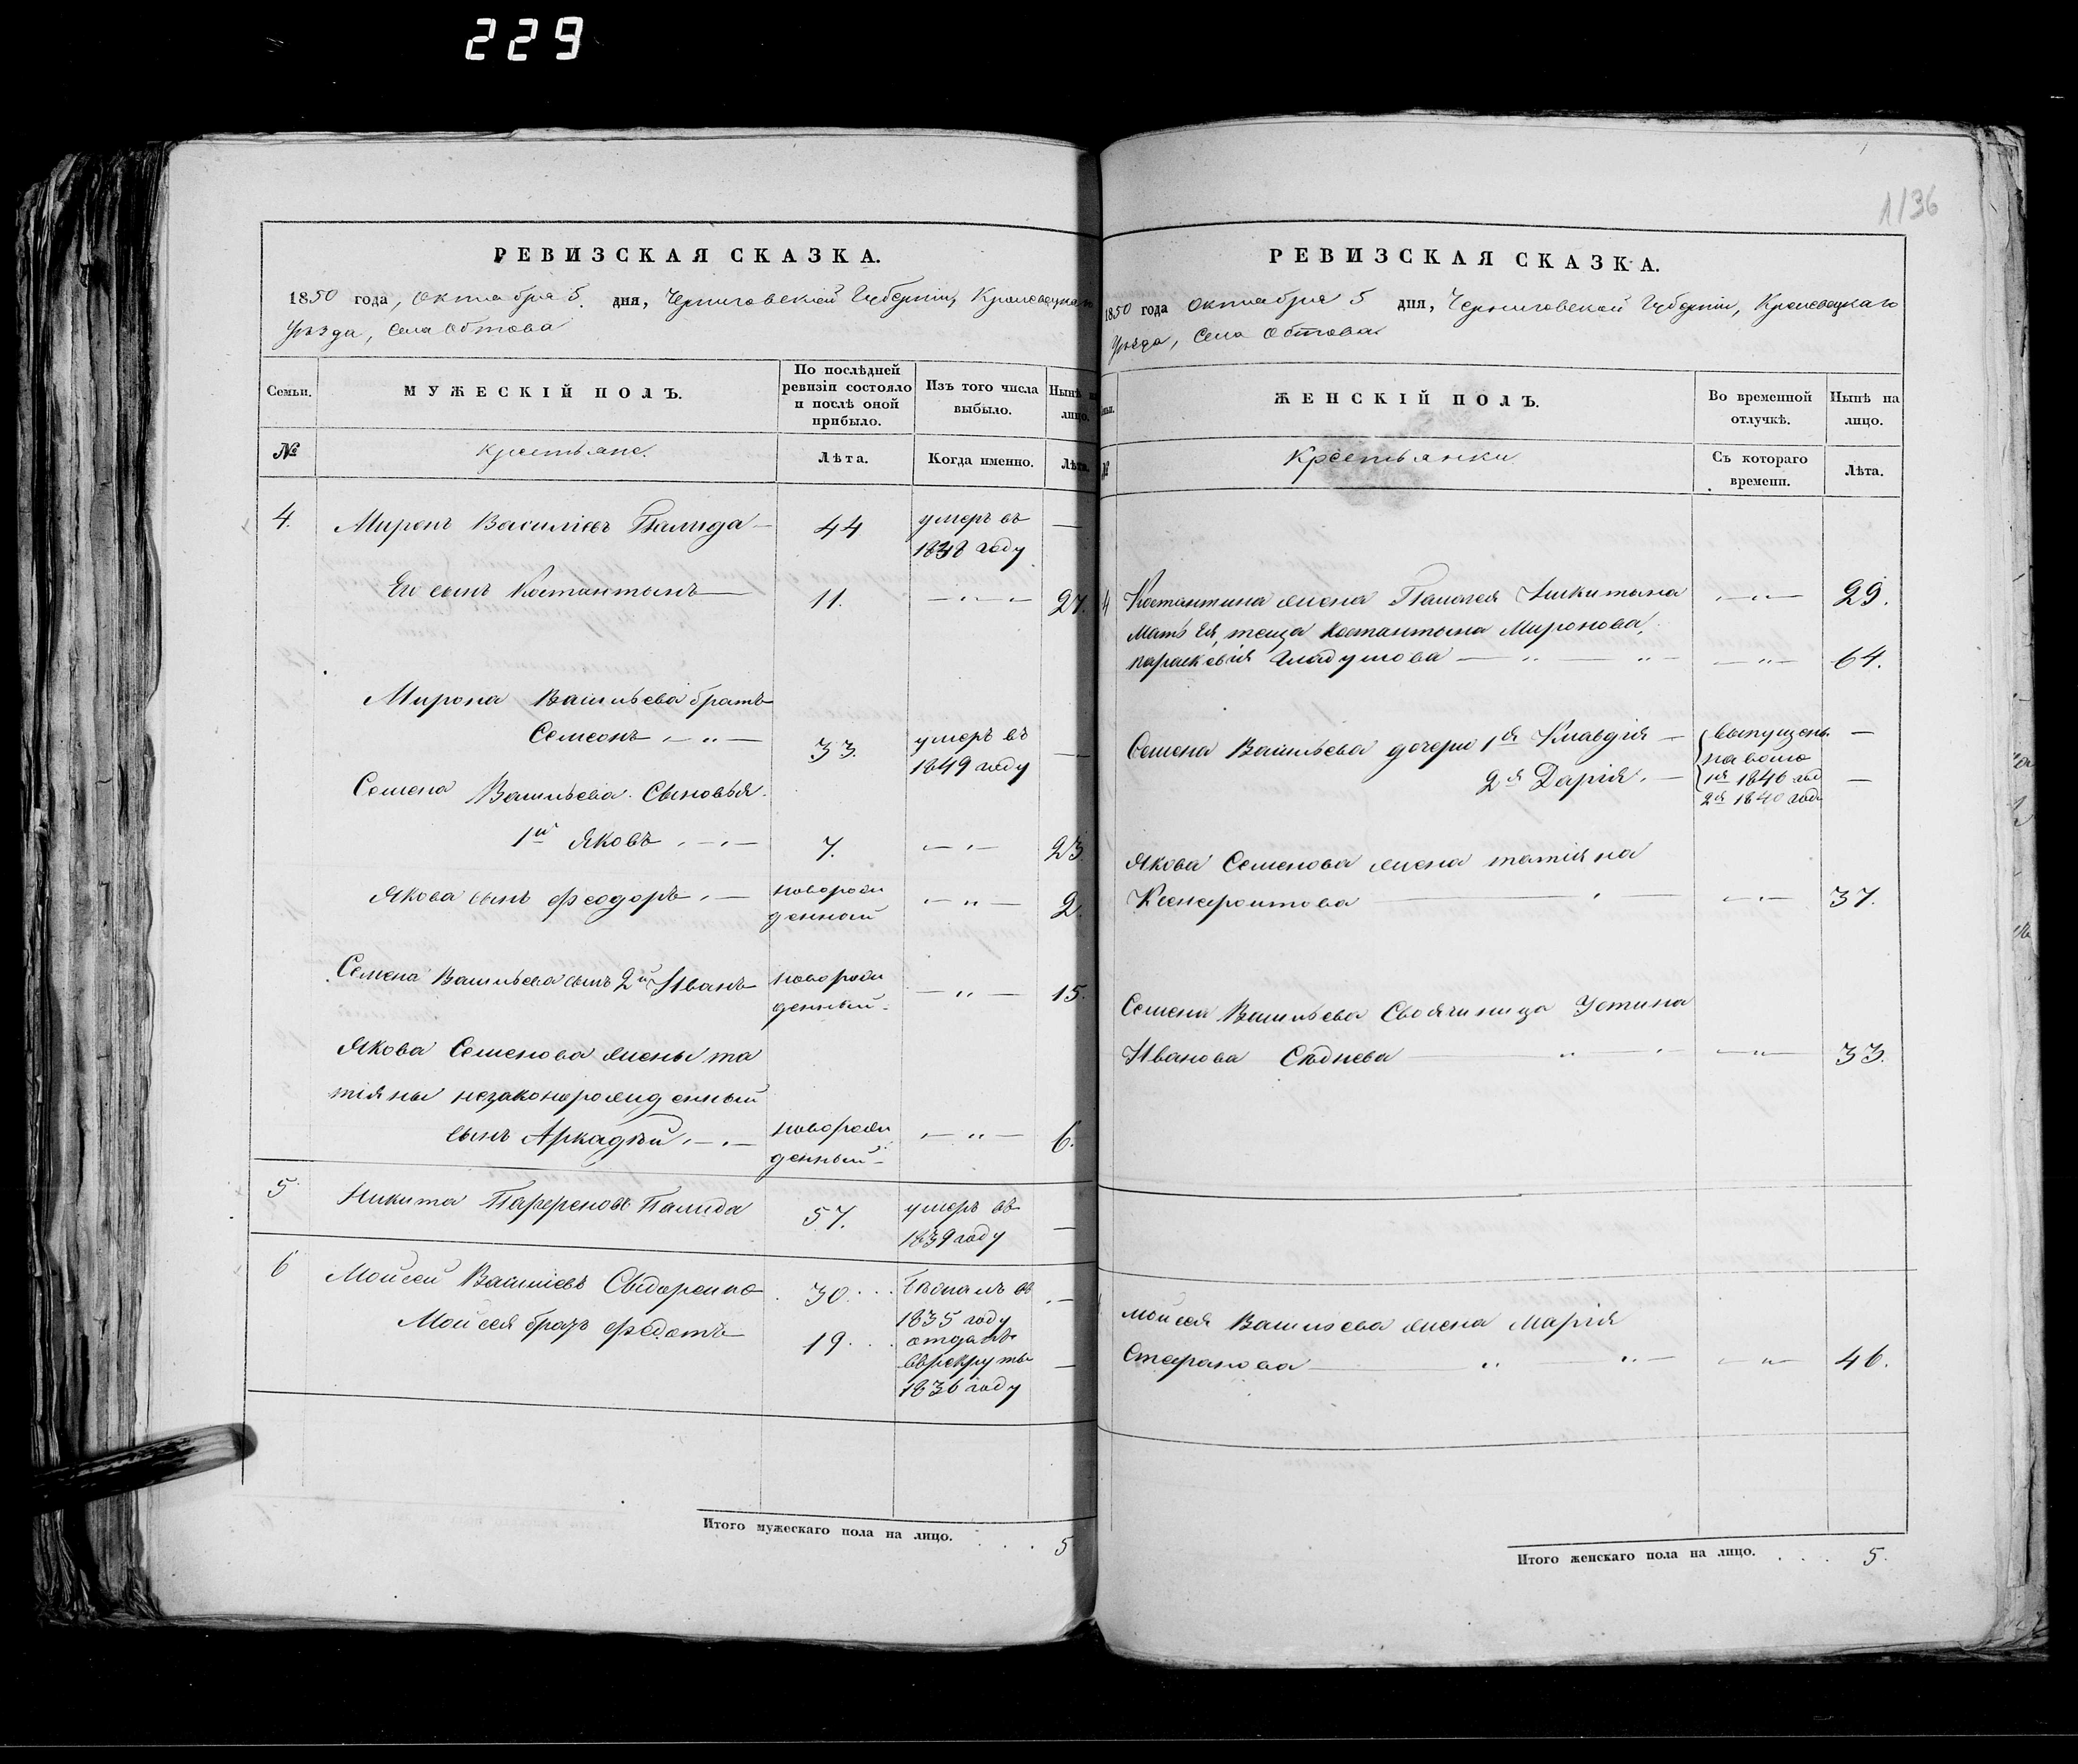 229
1136
РЕВИЗСКАЯ СКАЗКА.
1850 года, Октября 5. дня, Черниговской Губерніи, Кролевецкаго
Уѣзда, Села Обтова
Семьи.
МУЖЕСКІЙ ПОЛЪ.
По послѣдней
ревизіи состояло
и послѣ оной
прибыло.
Изъ того числа
выбыло.
Нынѣ на
лицо.
№
Крестьяне.
Лѣта.
Когда именно.
Лѣта.
4. Миронъ Василіевъ Палида 44 умеръ въ —
1838 году
Его сынъ Костантынъ 11. 27.
Мирона Васильева братъ
Семеонъ 33. умеръ въ —
1849 году
Семена Васильева Сыновья
1й Яковъ 7. 23.
Якова сынъ Феодоръ новорож 2.
денный
Семена Васильева сынъ 2й Иванъ новорож 15.
денный
Якова Семенова жены та
тіяны незаконорожденный
сынъ Аркадѣй новорож 6.
денный
5. Никита Парфеновъ Палида 57. умеръ въ —
1839 году
6 Мойсей Василіевъ Сидоренко 30. Бѣжалъ въ —
1835 году
Мойсея братъ Федотъ 19. отданъ
въ рекруты —
1836 году
Итого мужескаго пола на лицо. . . . 5
РЕВИЗСКАЯ СКАЗКА.
1850 года Октября 5 дня, Черниговской Губерніи, Кролевецкаго
Уѣзда, Села Обтова
ЖЕНСКІЙ ПОЛЪ.
Во временной
отлучкѣ.
Нынѣ на
лицо.
№
Крестьянки
Съ котораго
времени.
Лѣта.
4 Костантина жена Пелагея Никитина 29.
Мать Ея, теща Костантына Миронова,
параскевія 64.
Семена Васильева дочери 1я Клавдія — выпущены —
на волю
2я Дарія. — 1я 1846 год —
2я 1840 году
Якова Семенова жена татіяна
Ксенофонтова 37.
Семена Васильева Своячиница Устина
Иванова 33.
Мойсея Васильева жена Марія
Стефанова 46.
Итого женскаго пола на лицо. . . . 5.